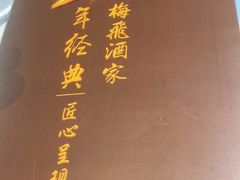 梅飛酒家
年经典|匠心呈现